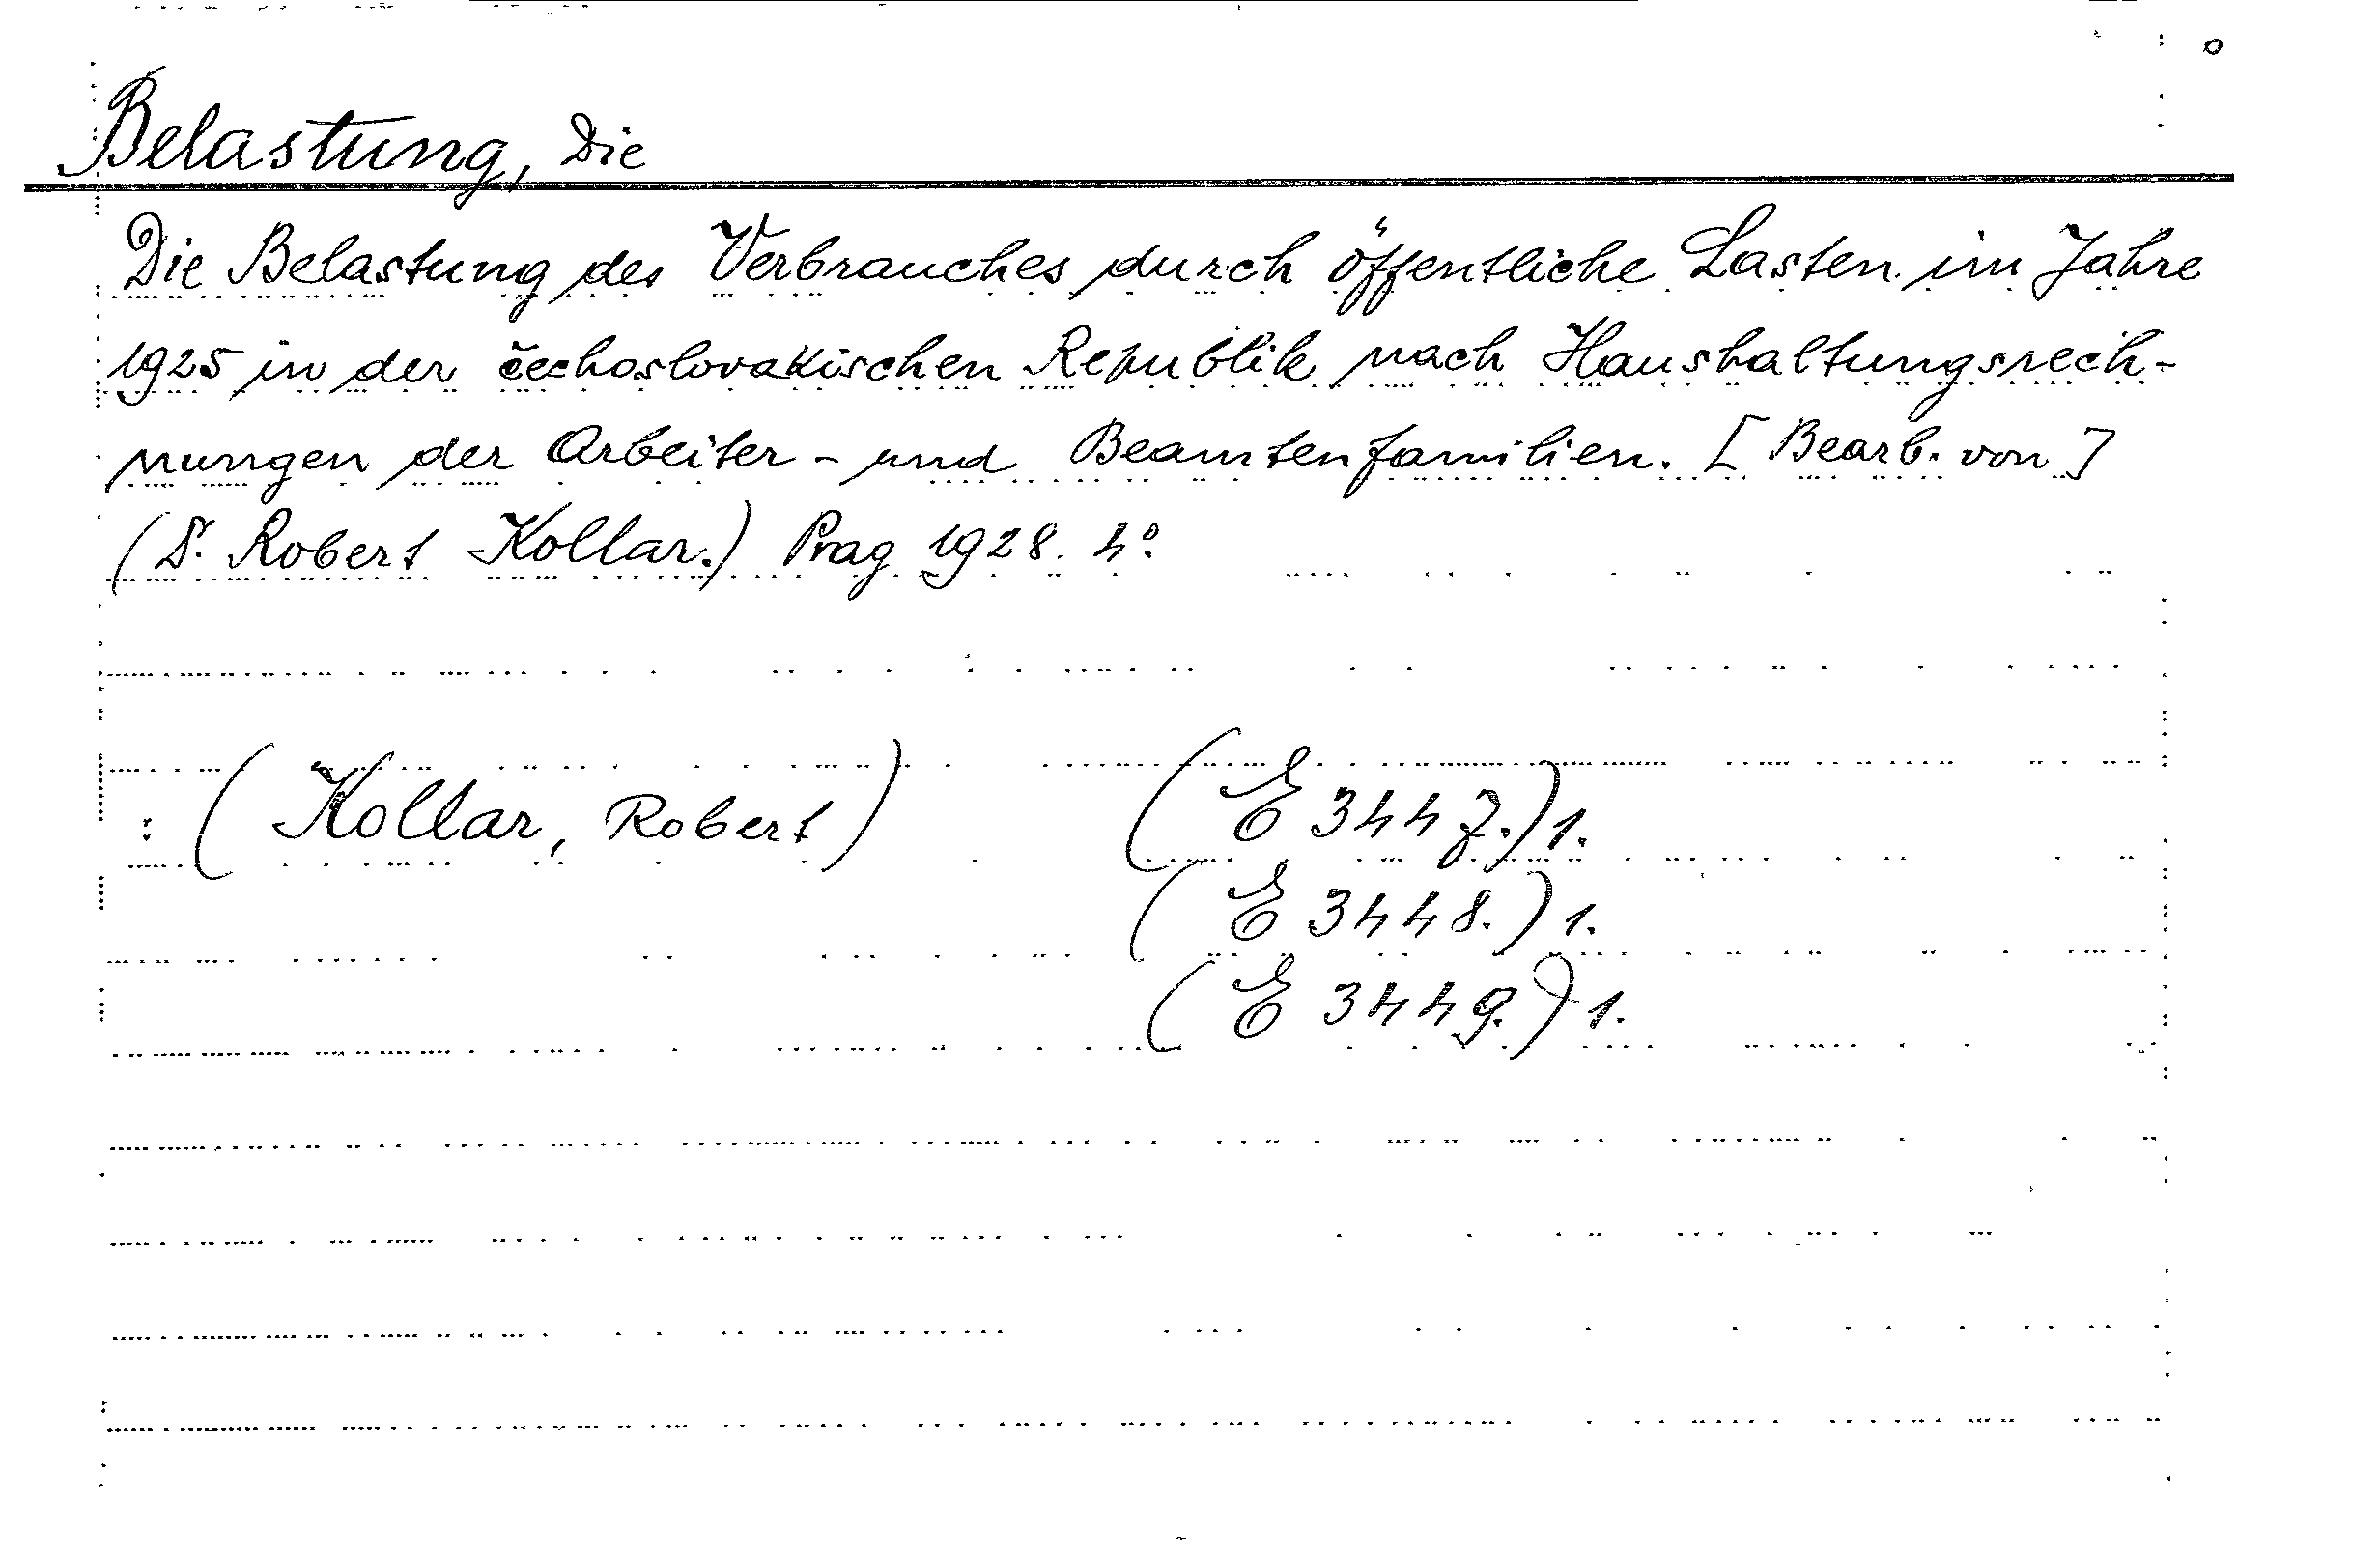 Belastung, Die
Die Belastung des Verbrauches durch öffentliche Lasten im Jahre
1925 in der čechoslovakischen Republik nach Haushaltungsrech-
nungen der Arbeiter- und Beamtenfamilien. [Bearb. von]
(Dr. Robert Kollar.) Prag 1928. 4°.
: (Kollar, Robert) (E 3447.) 1.
(E 3448.) 1.
(E 3449.) 1.